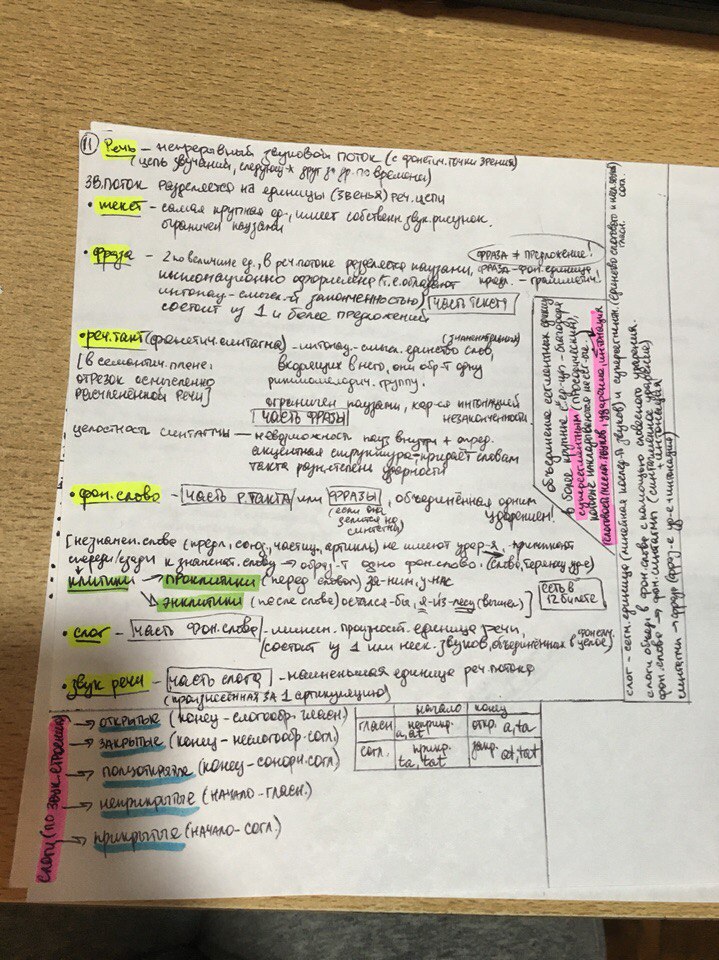 11 Речь – непрерывный звуковой поток (с фонетич. точки зрения)
(цепь звучаний, следующ-х друг за др. по времени)
Зв. поток разделяется на единицы (звенья) реч. цепи
• текст – самая крупная ед-, имеет собственн. звук. рисунок.
ограничен паузами
• фраза – 2 по величине ед., в реч. потоке разделяется паузами,
интонационно оформлена (т.е. обладает
интонац-смысл-й законченностью) часть текста
состоит из 1 и более предложений
фраза ≠ предложение!
фраза – фон. единица
предл. – грамматич.!
• реч. такт (фонетич. синтагма) – интонац.-смысл. единство слов,
(знаменательных)
[в семантич. плане:
отрезок осмысленно
расчленённой речи]
входящих в него, они обр-т одну
ритмомелодич. группу.
ограничен паузами, хар-ся интонацией
незаконченности.
часть фразы
целостность синтагмы – невозможность пауз внутри + опред.
акцентная структура – придаёт словам
такта разн. степень ударности
• фон. слово – часть р. такта или фразы, объединённая одним
(если она
делится на
синтагмы)
ударением!
[незнамен. слова (предл., союз, частиц., артикль) не имеют удар-я, примыкают
спереди/сзади к знаменат. слову → обраɜ-т одно фон. слово.
клитики → проклитики (перед словом) за-ним, у-нас
↘ энклитики (после слова) остался-бы, я-из-лесу (вышел)]
есть в
12 билете
• слог – часть фон. слова – миним. произносит. единица речи,
состоит из 1 или неск. звуков, объединённых в фонетич.
целое
• звук речи – часть слога – наименьшая единица реч. потока
(произнесённая за 1 артикуляцию)
слоги (по звук. строению)
→ открытые (конец – слогообр. гласн)
→ закрытые (конец – неслогообр. согл)
→ полуоткрытые (конец – сонорн. согл)
→ неприкрытые (начало – гласн.)
→ прикрытые (начало – согл.)
начало конец
гласн неприкр. a, at откр. a, ta
согл. прикр. ta, tat закр. at, tat
объединение сегментных единиц
в более крупные ед-цы – благодаря
суперсегментным (просодическим),
которые накладываются на сегм-ые.
(словосочетания звуков, ударение, интонация
слог – сегм. единица (линейная послед-ть звуков) и суперсегментн. (единство слогового и неслогового)
гласн. согл.
слоги объед. в фон. слово с помощью словесного ударения.
фон. слово → фон. синтагмы (синтагменное ударение)
+ интонация
синтагмы → фразу (фраз-е уд-е + интонация)